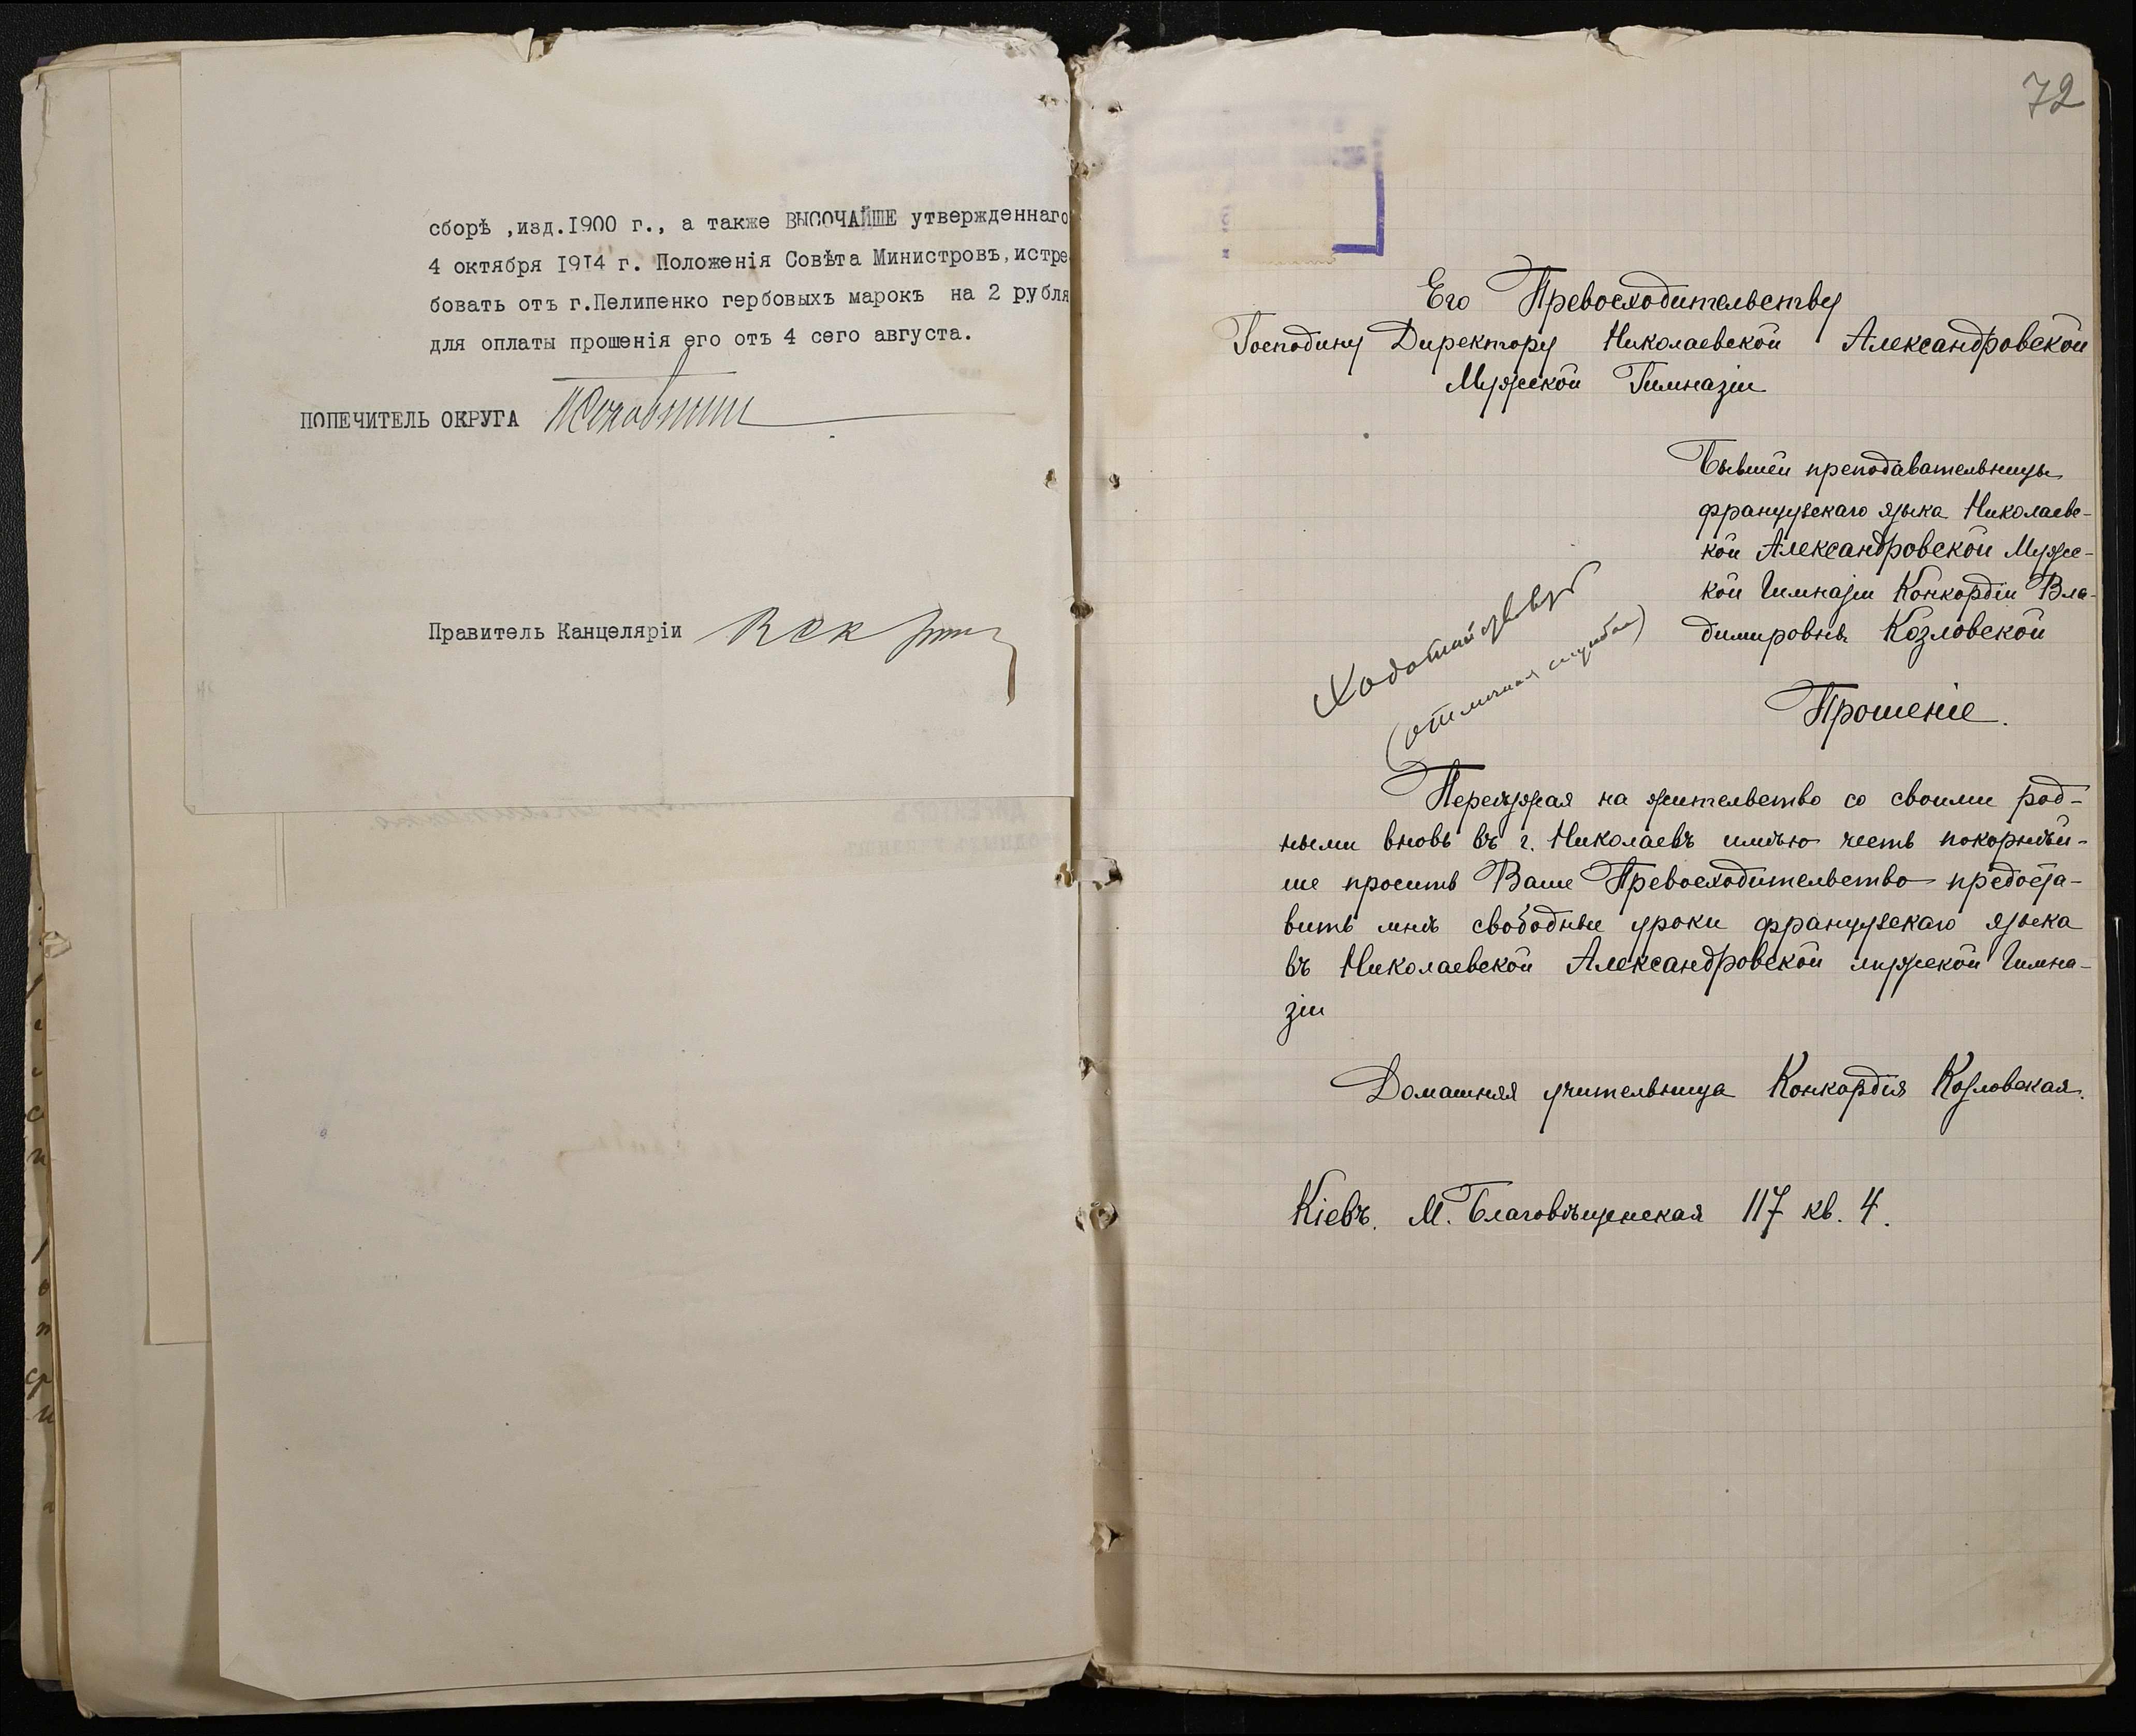 сборѣ ,изд.1900 г., а также ВЫСОЧАЙШЕ утвержденнаго
4 октября 1914 г. Положенія Совѣта Министровъ,истре
бовать отъ г.Пелипенко гербовыхъ марокъ на 2 рубля
для оплаты прошенія его отъ 4 сего августа.
ПОПЕЧИТЕЛЬ ОКРУГА
Правитель Канцеляріи
72
Его Превосходительству
Господину Директору Николаевской Александровской
Мужской Гимназіи
Бывшей преподавательницы
французскаго языка Николаевс-
кой Александровской Мужс-
кой Гимназіи Конкордіи Вла-
димировны Козловской
Ходатайствую
(отличная служба)
Прошеніе.
Переѣзжая на жительство со своими род-
ными вновь въ г. Николаевъ имѣю честь покорнѣй-
ше просить Ваше Превосходительство предоста-
вить мнѣ свободные уроки французскаго языка
въ Николаевской Александровской мужской Гимна-
зіи
Домашняя учительница Конкордія Козловская.
Кіевъ. М. Благовѣщенская 117 кв. 4.